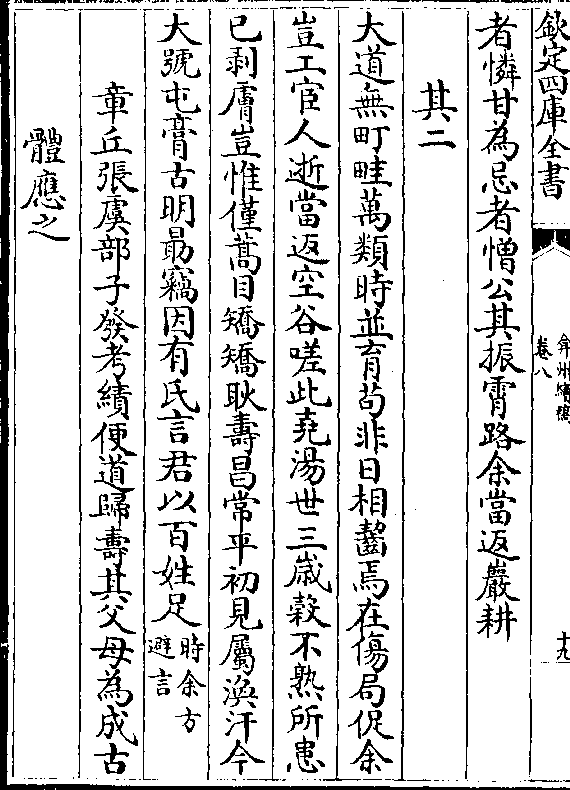 欽定四庫全書
弇州續稿
卷八
十九
者憐甘為忌者憎公其振霄路余當返巖耕
其二
大道無町畦萬類時並育茍非日相齧焉在傷局促余
豈工宦人逝當返空谷嗟此堯湯世三歲穀不熟所患
已剥膚豈惟僅蒿目矯矯耿壽昌常平初見屬渙汗今
大號屯膏古明朂竊因有氏言君以百姓足時余方避言
章丘張虞部子發考績便道歸壽其父母為成古
體應之